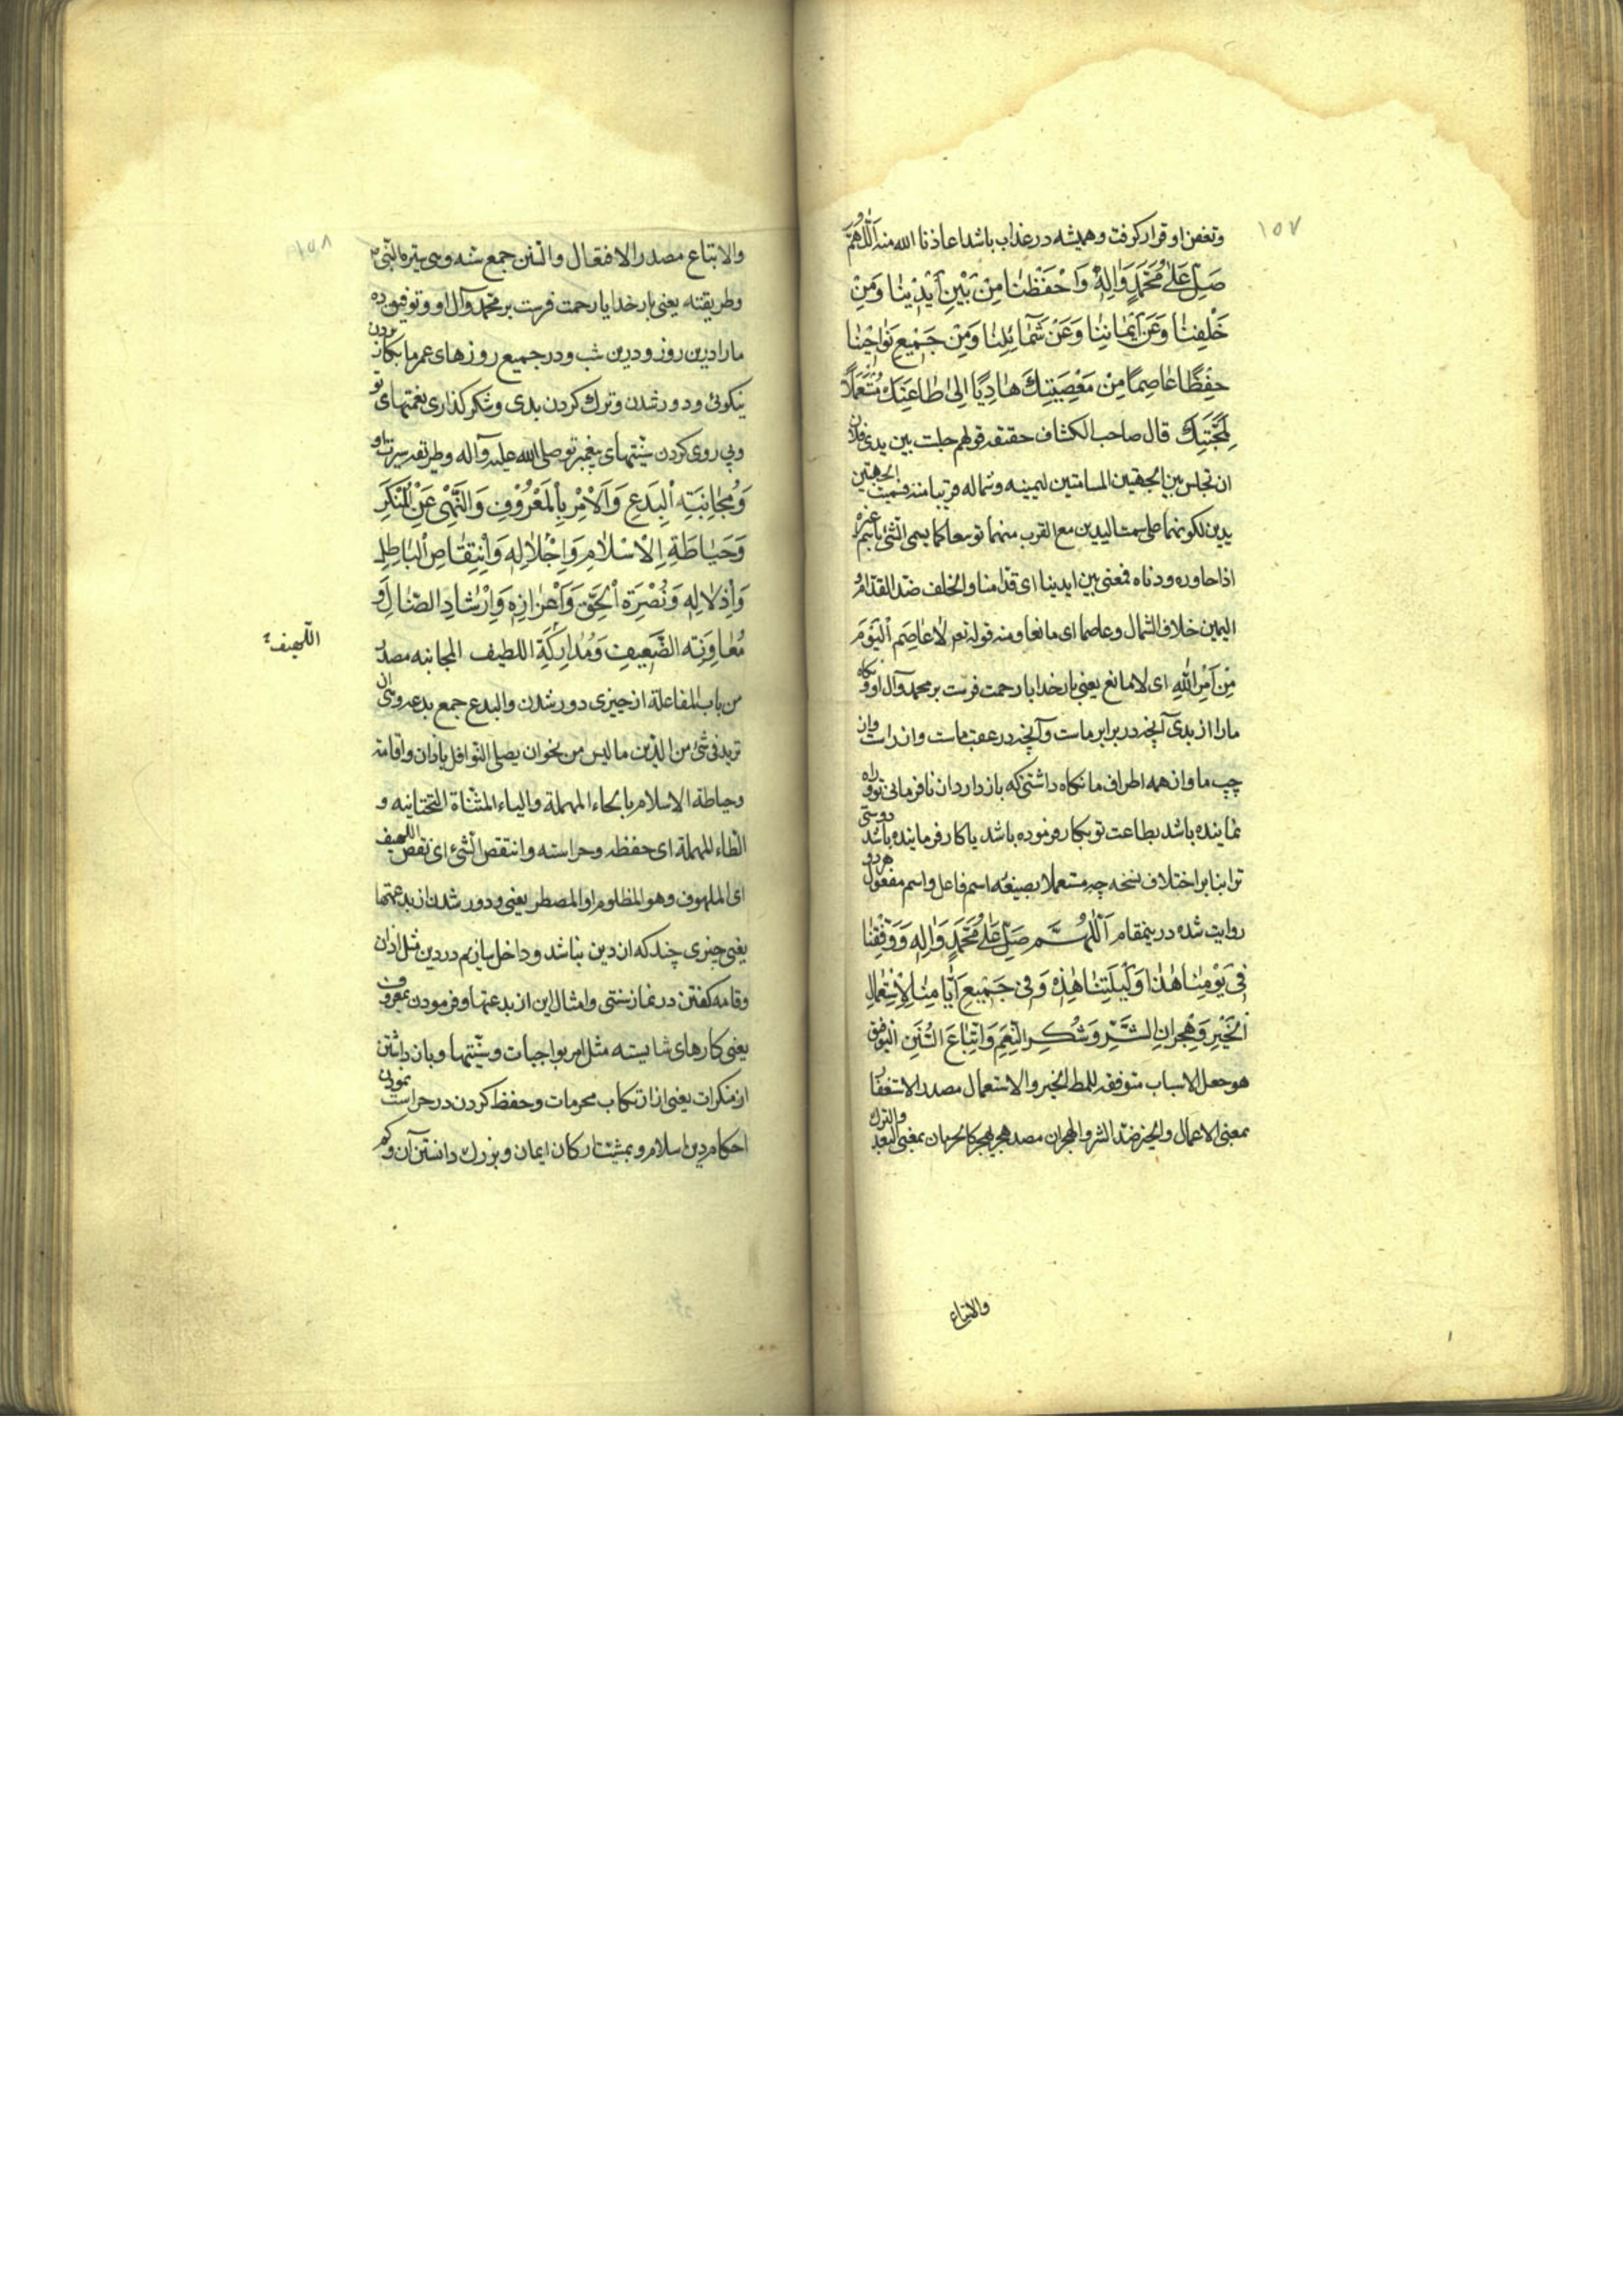 ۱۵۷
وتعفن او قرار گرفت و همیشه در عذاب باشد اعاذنا الله منه اَللّٰهُمَّ
صَلِّ عَلٰى مُحَمَّدٍ وَاٰلِهٖ وَاحْفَظْنٰا مِنْ بَيْنِ اَيْدِيْنٰا وَمِنْ
خَلْفِنٰا وَعَنْ اَيْمٰانِنٰا وَعَنْ شَمٰائِلِنٰا وَمِنْ جَمِيْعِ نَوٰاحِيْنٰا
حِفْظًا عٰاصِمًا مِنْ مَعْصِيَتِكَ هٰادِيًا اِلىٰ طٰاعَتِكَ مُسْتَعْمَلًا
لِمَحَبَّتِكَ قال صاحب الكشاف حقيقه قولهم جلست بين يدى فلان
ان تجلس بين الجهتين المسامتتين ليمينه وشماله قريبا منه فسميت الجهتين
يدين لكونهما على سمت اليدين مع القرب منهما توسعا كما يسمى الشئ باسم غيره
اذا جاوره وداناه فمعنى بين ايدينا اى قدامنا والخلف ضد القدام و
اليمين خلاف الشمال وعاصما اى مانعا ومنه قوله تعر لاٰعٰاصِمَ الْيَوْمَ
مِنْ اَمْرِ اللهِ اى لا مانع يعنى بار خدايا رحمت فرست بر محمد وآل او و نكاه
ما را از بدى آنچه در برابر ماست وآنچه در عقب ماست واز راست واز
چپ ما واز همه اطراف ما نكاه داشتنى كه باز دارد از نافرمانى تو و راه
نماينده باشد بطاعت تو بكار فرموده باشد يا كار فرماينده باشد دوستى
ترا بنا بر اختلاف نسخه چه مستعملا بصيغه اسم فاعل و اسم مفعول هر دو
روايت شده درينمقام اَللّٰهُمَّ صَلِّ عَلٰى مُحَمَّدٍ وَاٰلِهٖ وَوَفِّقْنٰا
فِى يَوْمِنٰا هٰذٰا وَلَيْلَتِنٰا هٰذِهٖ وَفِى جَمِيْعِ اَيّٰامِنٰا لِاِسْتِعْمٰالِ
الْخَيْرِ وَهِجْرٰانِ الشَّرِّ وَشُكْرِ النِّعَمِ وَاتِّبٰاعِ السُّنَنِ التوفيق
هو جعل الاسباب متوفقه للمط الخير والاستعمال مصدر الاستفعال
بمعنى الاعمال والخير ضد الشر والهجران مصدر هجر يهجر كالحرمان بمعنى البعد والترك
والاتباع
والاتباع مصدر الافتعال والسنن جمع سنه وهى سيرة النبى ص
وطريقته يعنى بار خدايا رحمت فرست بر محمد وآل او و توفيق ده
ما را درين روز و درين شب و در جميع روزهاى عمر ما بكار بردن
نيكوئى و دور شدن و ترك كردن بدى و شكر گذارى نعمتهاى تو
و پى روى كردن سنتهاى پيغمبر تو صلى الله عليه وآله و طريقه سيرت او
وَمُجٰانَبَةِ الْبِدَعِ وَالْاَمْرِ بِالْمَعْرُوْفِ وَالنَّهْىِ عَنِ الْمُنْكَرِ
وَحِيٰاطَةِ الْاِسْلٰامِ وَاِجْلٰالِهٖ وَاِنْتِقٰاصِ الْبٰاطِلِ
وَاِذْلٰالِهٖ وَنُصْرَةِ الْحَقِّ وَاِعْزٰازِهٖ وَاِرْشٰادِ الضّٰالِّ وَ
مُعٰاوَنَةِ الضَّعِيْفِ وَمُدٰارَكَةِ اللطيف المجانبه مصدر
اللّهيف
من باب المفاعلة از چيزى دور شدن والبدع جمع بدعه وهى ان
تريد فى شئ من الدين ما ليس من نحو ان يصلى النوافل باذان واقامة
وحياطة الاسلام بالحاء المهملة والياء المثناة التحتانيه و
الطاء المهملة اى حفظه وحراسته وانتقص الشئ اى نقص اللهيف
اى الملهوف وهو المظلوم او المضطر يعنى و دور شدن از بدعتها
يعنى چيزى چند كه از دين نباشد و داخل سازيم در دين مثل اذان
وقامه گفتن در نماز سنتى وامثال اين از بدعتها و فرمودن بمعروف
يعنى كارهاى شايسته مثل امر بواجبات و سنتها و باز داشتن
از منكرات يعنى از ارتكاب محرمات و حفظ كردن در حراست نمودن
احكام دين اسلام و بمشيت اركان ايمان و بزرك دانستن آن و كم